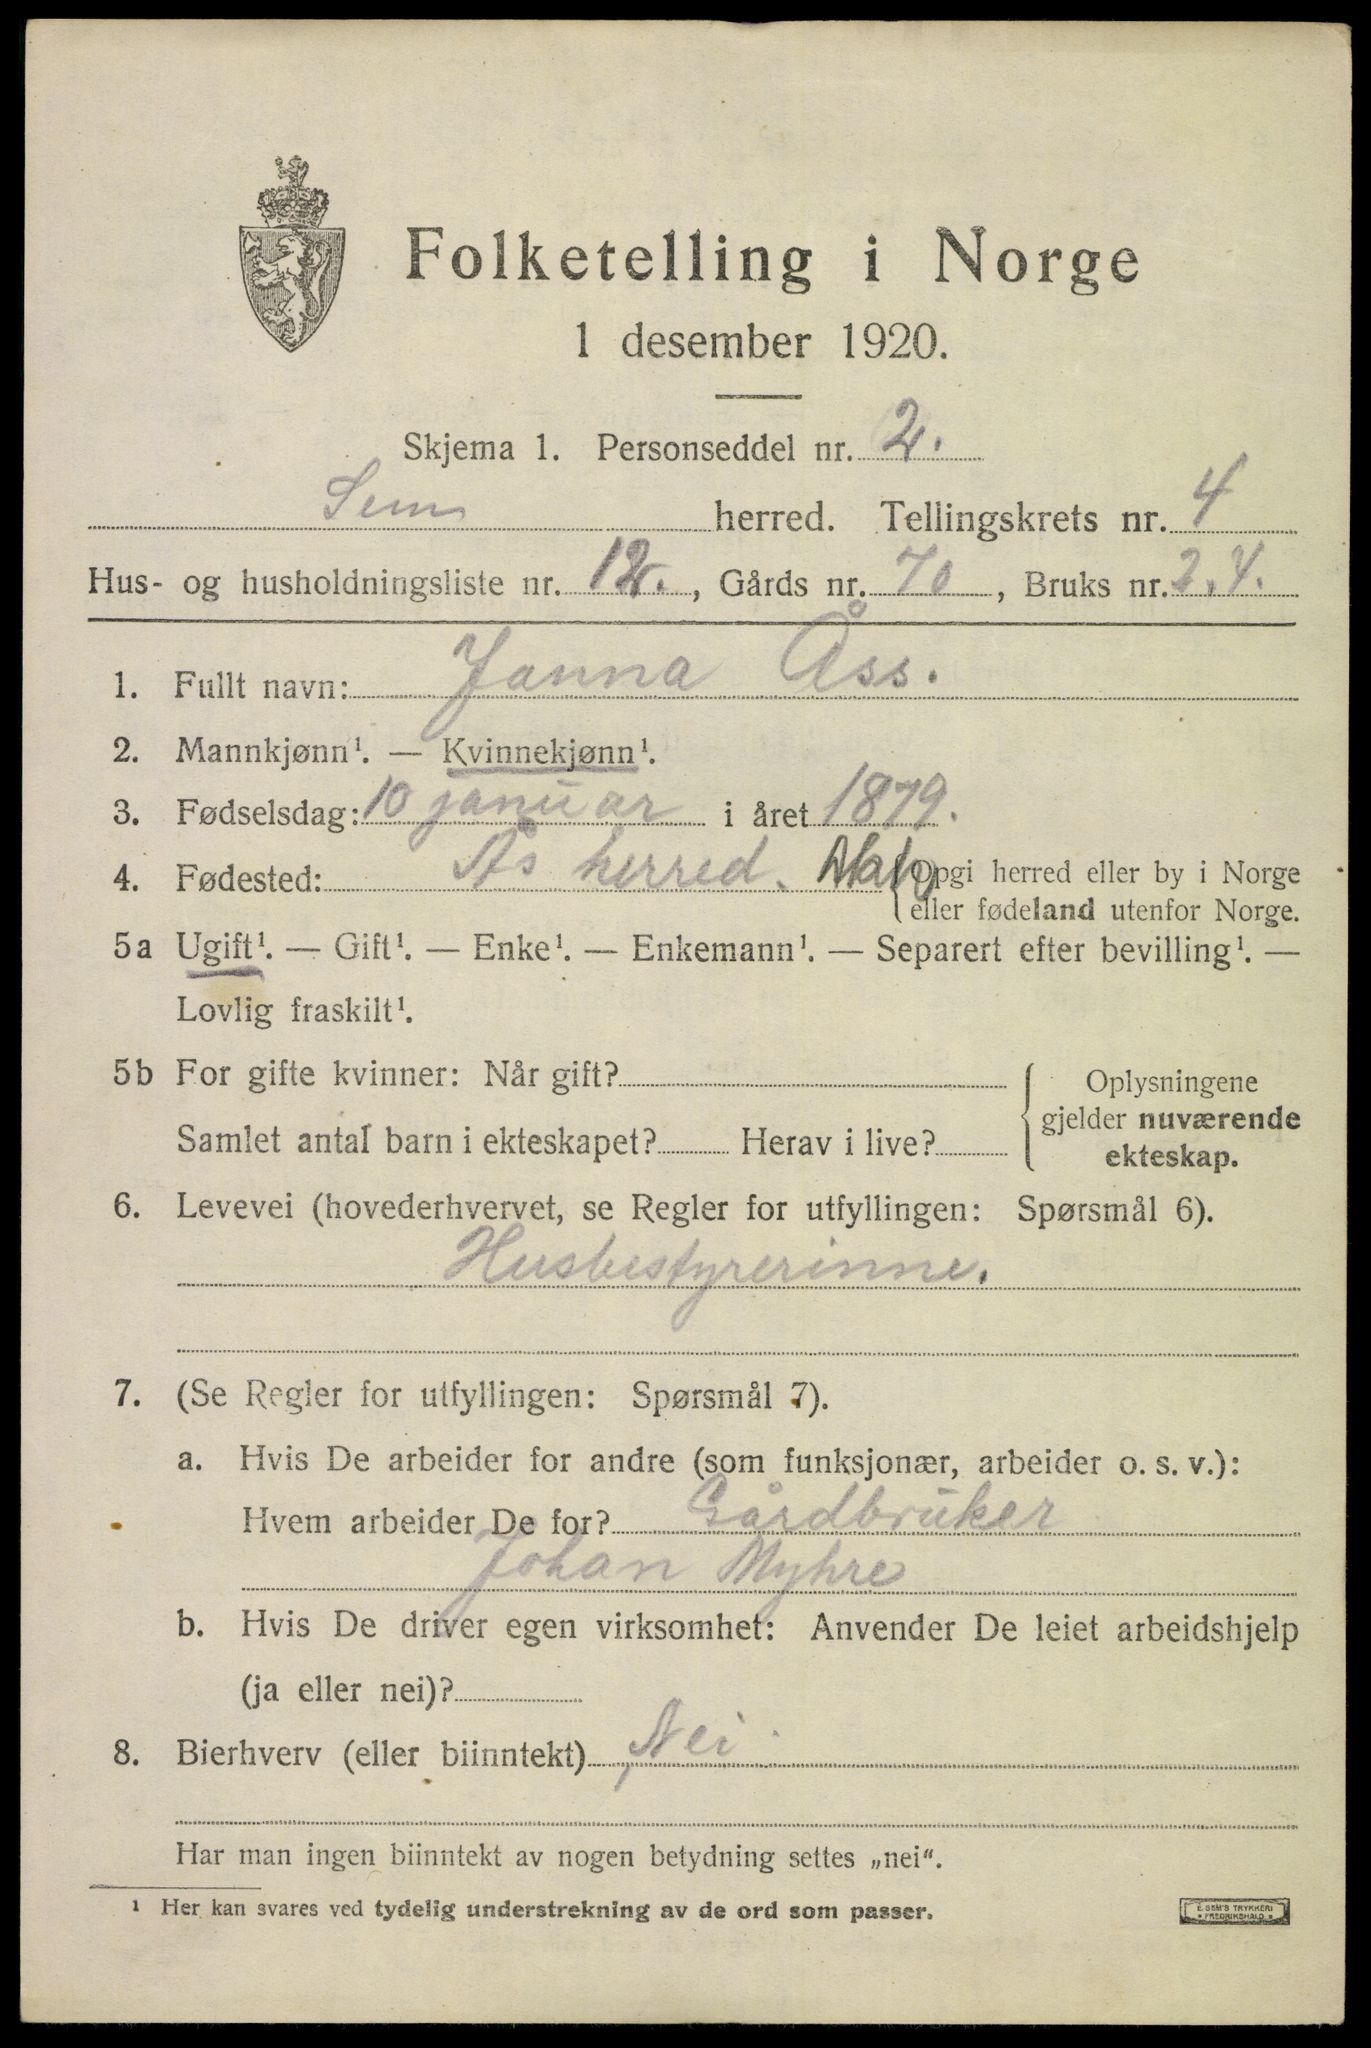 Folketelling i Norge
1 desember 1920.
Skjema 1. Personseddel nr. 2.
Sem herred. Tellingskrets nr. 4
Hus- og husholdningsliste nr. 12., Gårds nr. 70, Bruks nr. 2.4.
1. Fullt navn: Janna Åss.
2. Mannkjønn¹. — Kvinnekjønn¹.
3. Fødselsdag: 10 januar i året 1879.
4. Fødested: Ås herred. {Opgi herred eller by i Norge
eller fødeland utenfor Norge.
5a Ugift¹. — Gift¹. — Enke¹. — Enkemann¹. — Separert efter bevilling¹. —
Lovlig fraskilt¹.
5b For gifte kvinner: Når gift? { Oplysningene
gjelder nuværende
Samlet antal barn i ekteskapet? Herav i live?
ekteskap.
6. Levevei (hovederhvervet, se Regler for utfyllingen: Spørsmål 6).
Husbestyrerinne.
7. (Se Regler for utfyllingen: Spørsmål 7).
a. Hvis De arbeider for andre (som funksjonær, arbeider o. s. v.):
Hvem arbeider De for? Gårdbruker
Johan Myhre
b. Hvis De driver egen virksomhet: Anvender De leiet arbeidshjelp
(ja eller nei)?
8. Bierhverv (eller biinntekt) Nei
Har man ingen biinntekt av nogen betydning settes „nei“.
¹ Her kan svares ved tydelig understrekning av de ord som passer.
E. SEM'S TRYKKERI
FREDRIKSHALD